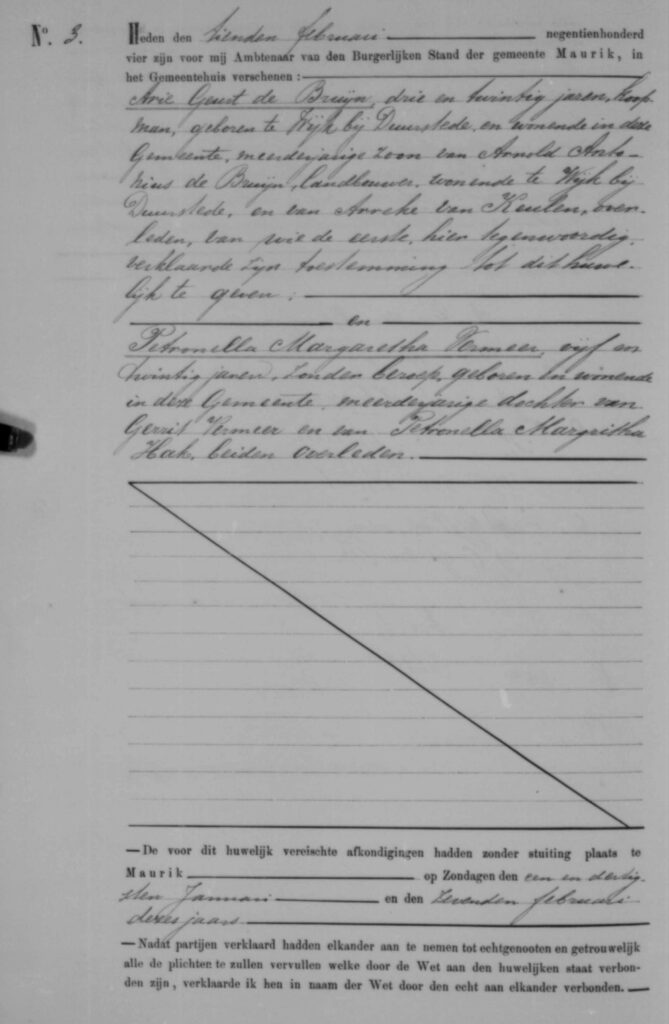 No. 3. Heden den tienden februari negentienhonderd
vier zijn voor mij Ambtenaar van den Burgerlijken Stand der gemeente Maurik, in
het Gemeentehuis verschenen :
Arie Geurt de Bruijn, drie en twintig jaren, koop-
man, geboren te Wijk bij Duurstede, en wonende in deze
Gemeente, meerderjarige zoon van Arnold Anto-
nius de Bruijn, landbouwer, wonende te Wijk bij
Duurstede, en van Anneke van Keulen, over-
leden, van wie de eerste, hier tegenwoordig,
verklaarde zijn toestemming tot dit huwe-
lijk te geven :
en
Petronella Margaretha Vermeer, vijf en
twintig jaren, zonder beroep, geboren en wonende
in deze Gemeente, meerderjarige dochter van
Gerrit Vermeer en van Petronella Margritha
Hak, beiden overleden.
—De voor dit huwelijk vereischte afkondigingen hadden zonder stuiting plaats te
Maurik op Zondagen den een en dertig-
sten Januari en den zevenden februari
dezes jaars
—Nadat partijen verklaard hadden elkander aan te nemen tot echtgenooten en getrouwelijk
alle de plichten te zullen vervullen welke door de Wet aan den huwelijken staat verbon-
den zijn, verklaarde ik hen in naam der Wet door den echt aan elkander verbonden.